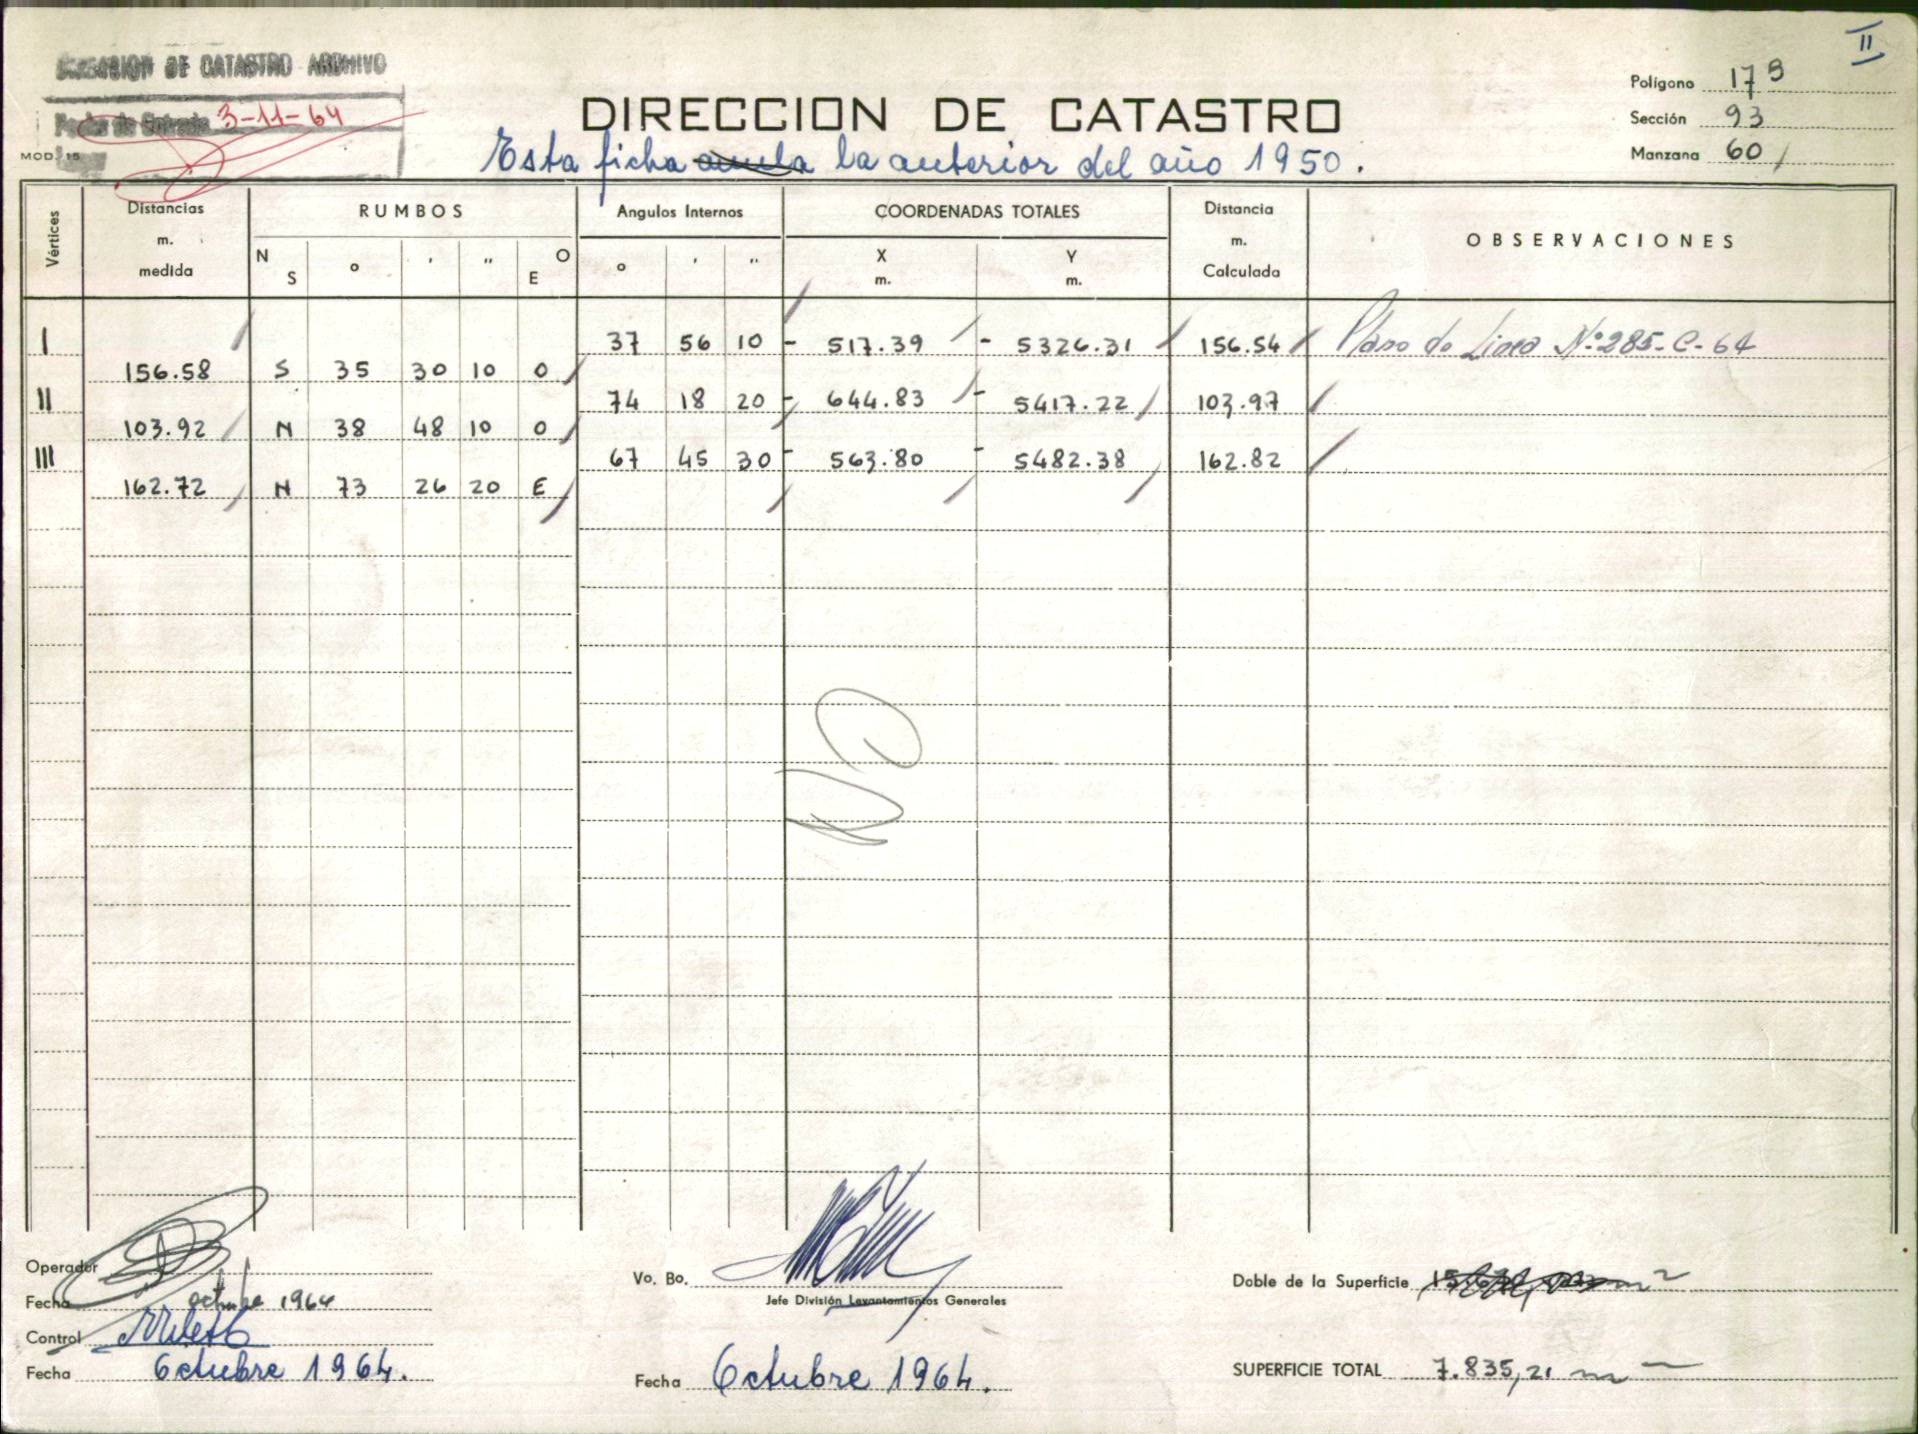 II
DIRECCION DE CATASTRO ARCHIVO
Fecha de Entrada 3-11-64
MOD. 15
DIRECCION DE CATASTRO
Esta ficha anula la anterior del año 1950.
Polígono 17 B
Sección 93
Manzana 60
Vértices Distancias m. medida RUMBOS Angulos Internos COORDENADAS TOTALES Distancia m. Calculada OBSERVACIONES
N S ° ' " O E ° ' " X m. Y m.
I 37 56 10 - 517.39 - 5326.31 156.54 Plano de Linea Nº 285-C-64
156.58 S 35 30 10 O
II 74 18 20 - 644.83 - 5417.22 103.97
103.92 N 38 48 10 O
III 67 45 30 - 563.80 - 5482.38 162.82
162.72 N 73 26 20 E
Operador
Fecha octubre 1964
Control
Fecha Octubre 1964.
Vo. Bo.
Jefe División Levantamientos Generales
Fecha Octubre 1964.
Doble de la Superficie m²
SUPERFICIE TOTAL 7.835,21